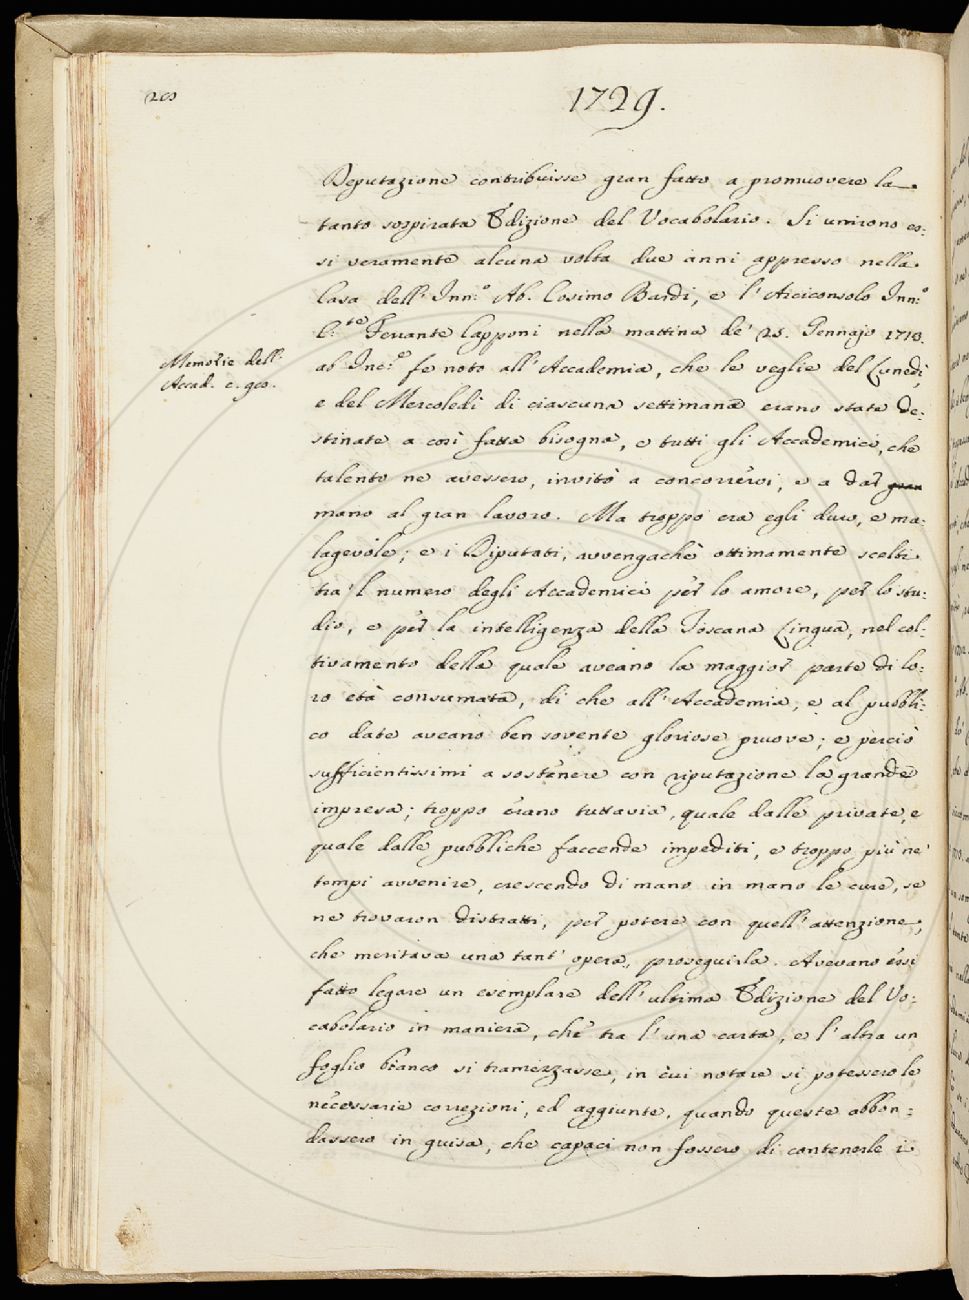 1729.
Deputazione contribuisse gran fatto a promuovere la
tanto sospirata Edizione del Vocabolario. Si unirono es:
si veramente alcuna volta due anni appresso nella
Casa dell' Inn:o Ab. Cosimo Bardi, e l' Arciconsolo Inn:o
C:te Ferrante Capponi nella mattina de' 25. Gennajo
Memorie dell'
Accad. c.
ab Inc:e fe noto all' Accademia, che le veglie del Lunedì,
e del Mercoledì di ciascuna settimana erano state de:
stinate a così fatta bisogna, e tutti gli Accademici, che
talento ne avessero, invitò a concorrervi, e a dar gran
mano al gran lavoro. Ma troppo era egli duro, e ma:
lagevole; e i Diputati, avvengachè ottimamente scelti
tra 'l numero degli Accademici per lo amore, per lo stu:
dio, e per la intelligenza della Toscana Lingua, nel col:
tivamento della quale aveano la maggior parte di lo:
ro età consumata, di che all' Accademia, e al pubbli:
co date aveano ben sovente gloriose pruove; e perciò
sufficientissimi a sostenere con riputazione la grande
impresa; troppo erano tuttavia, quale dalle private, e
quale dalle pubbliche faccende impediti, e troppo più ne'
tempi avvenire, crescendo di mano in mano le cure, se
ne trovaron distratti, per potere con quell' attenzione,
che meritava una tant' opera, proseguirla. Avevano essi
fatto legare un esemplare dell' ultima Edizione del Vo:
cabolario in maniera, che tra l' una carta, e l' altra un
foglio bianco si tramezzasse, in cui notare si potessero le
necessarie correzioni, ed aggiunte, quando queste abbon:
dassero in guisa, che capaci non fossero di contenerle i